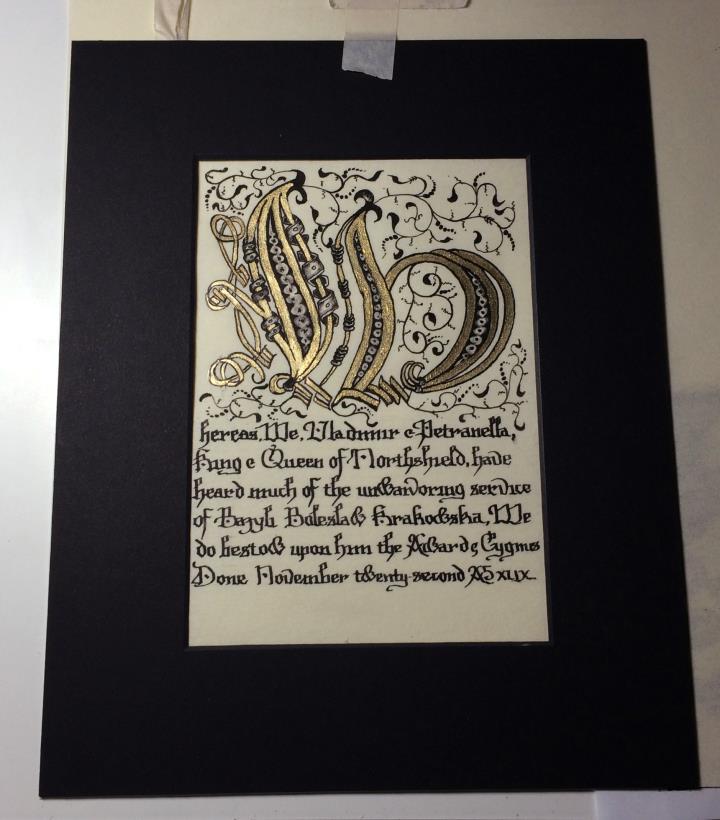 Whereas, We, Vladimir & Petranella,
King & Queen of Northshield, have
heard much of the unwavoring service
of Bazyli Boleslaw Krakowska, We
do bestow upon him the Award & Cygnus
Done November twenty-second AS XLIX